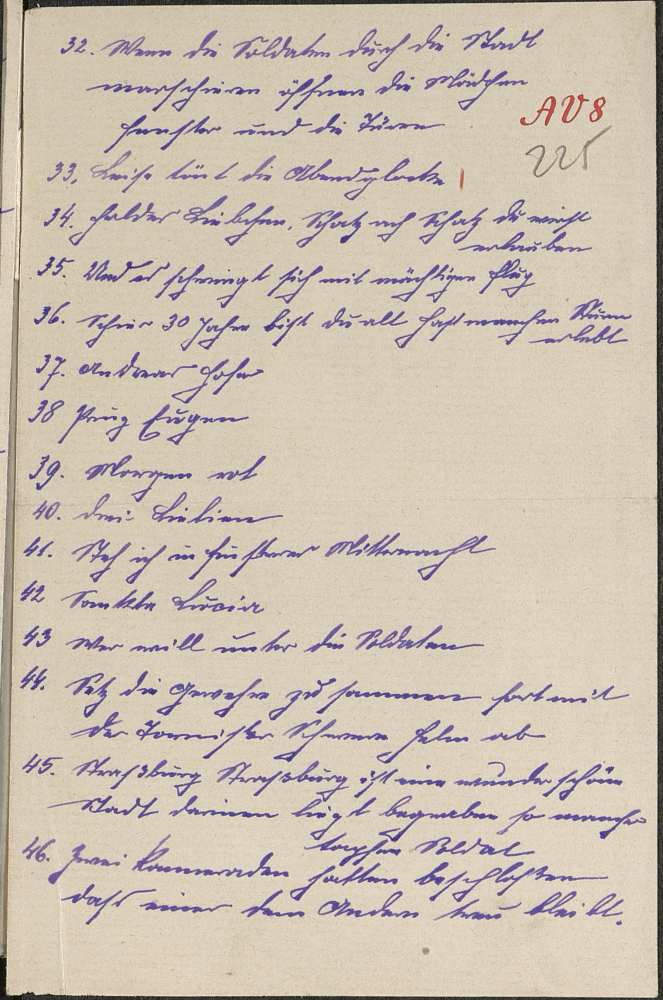 32. Wenn die Soldaten durch die Stadt
marschieren öffnen die Mädchen
Fenster und die Türen
AV8
225
33, Leise tönt die Abendglocke
34. Holdes Liebchen, Schatz ach Schatz du weist
erlauben
35. Und es schwingt sich mit mächtigem Flug
36. Schier 30 Jahre bist du alt hast manchen Sturm
erlebt
37. Andreas Hofer
38 Prinz Eugen
39. Morgen rot
40. drei Lielien
41. Steh ich in finsterer Mitternacht
42 Sankta Lucia
43 Wer will unter die Soldaten
44. Setz die Gewehre zu sammen fort mit
der Tornister Schwere Helm ab
45. Straßburg Straßburg ist eine wunder schöne
Stadt darinen liegt begraben so mancher
tapfere Soldat
46. Zwei Kammeraden hatten beschloßen
dass einer dem Andern treu bleibt.